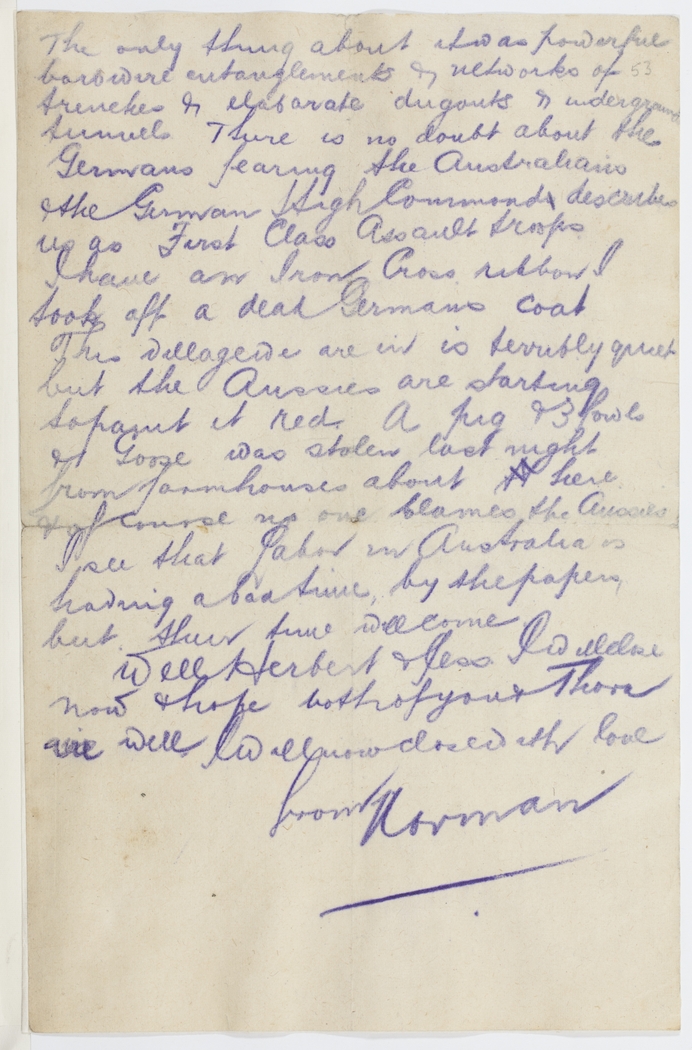 The only thing about it was powerful
barbwire entanglements & networks of 53
trenches & elaborate dugouts & underground
tunnels There is no doubt about the
Germans fearing the Australians
& the German High Command describes
us as First Class Assault troops.
I have an Iron Cross ribbon I
took off a dead Germans coat
This village we are in is terribly quiet
but the Aussies are starting
to paint it red. A pig & 3 fowls
& Goose was stolen last night
from farmhouses about here
& of course no one blames the Aussies
I see that Labor in Australia is
having a bad time, by the papers,
but their time will come.
Well Herbert & Jess I will close
now & hope both of you & Thora
are well I will now close with love
from Norman